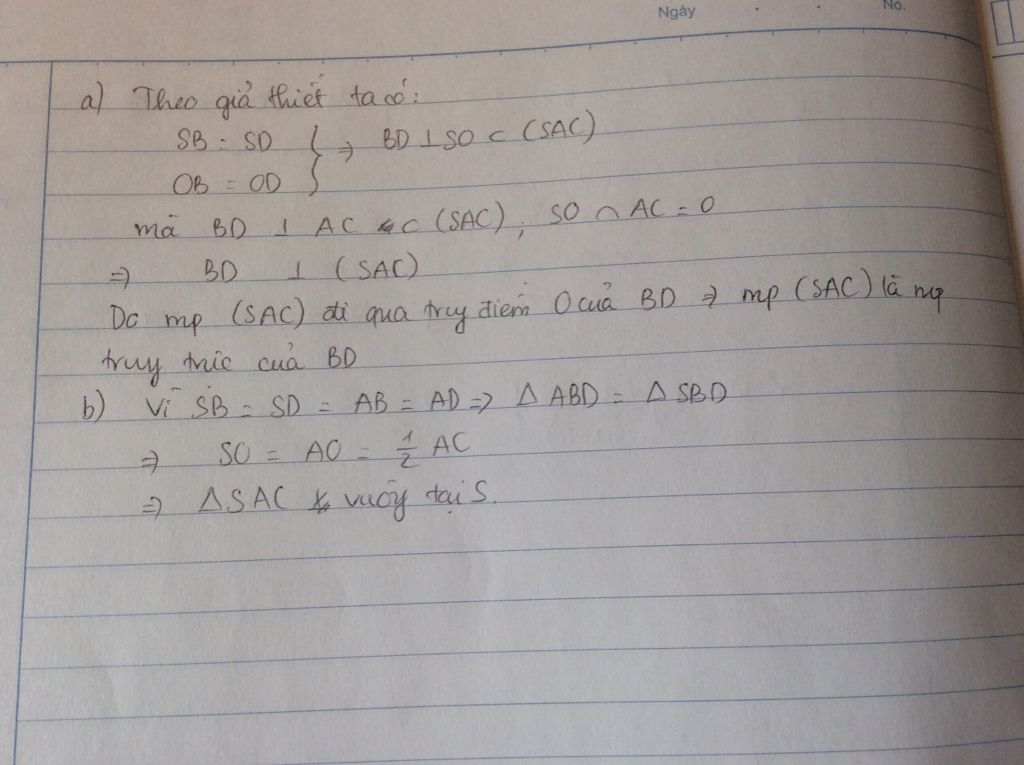 Ngày
No.
a) Theo giả thiết ta có:
SB = SD } => BD ⊥ SO ⊂ (SAC)
OB = OD
mà BD ⊥ AC ⊂ (SAC), SO ∩ AC = O
=> BD ⊥ (SAC)
Do mp (SAC) đi qua trug điểm O của BD => mp (SAC) là mp
trug trực của BD
b) Vì SB = SD = AB = AD => Δ ABD = Δ SBD
=> SO = AO = 1/2 AC
=> ΔSAC vuôg tại S.